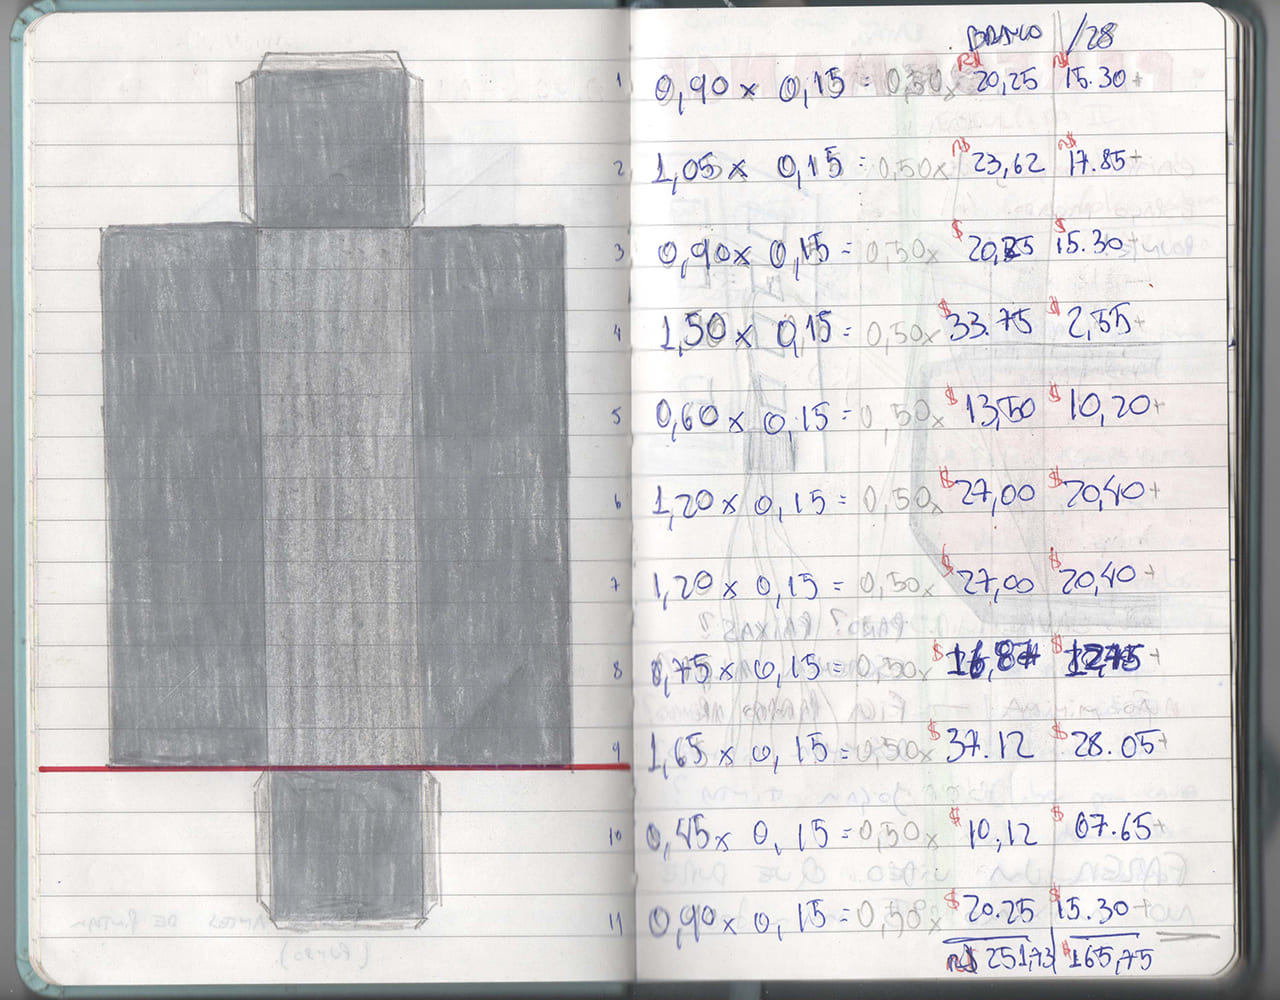 BRANCO /28
1 0,90 x 0,15 = 0,50x R$ 20,25 R$ 15.30+
2 1,05 x 0,15 = 0,50x R$ 23,62 R$ 17.85+
3 0,90 x 0,15 = 0,50x $ 20,25 $ 15.30+
4 1,50 x 0,15 = 0,50x $ 33.75 $ 2,55+
5 0,60 x 0,15 = 0,50x $ 13,50 $ 10,20+
6 1,20 x 0,15 = 0,50x $ 27,00 $ 20,40+
7 1,20 x 0,15 = 0,50x $ 27,00 $ 20,40+
8 0,75 x 0,15 = 0,50x $ 16,87 $ 12,75+
9 1,65 x 0,15 = 0,50x $ 37.12 $ 28.05+
10 0,45x 0,15 = 0,50x $ 10,12 $ 07.65+
11 0,90x 0,15 = 0,50x $ 20.25 $ 15.30+
R$ 251,73 $ 165,75